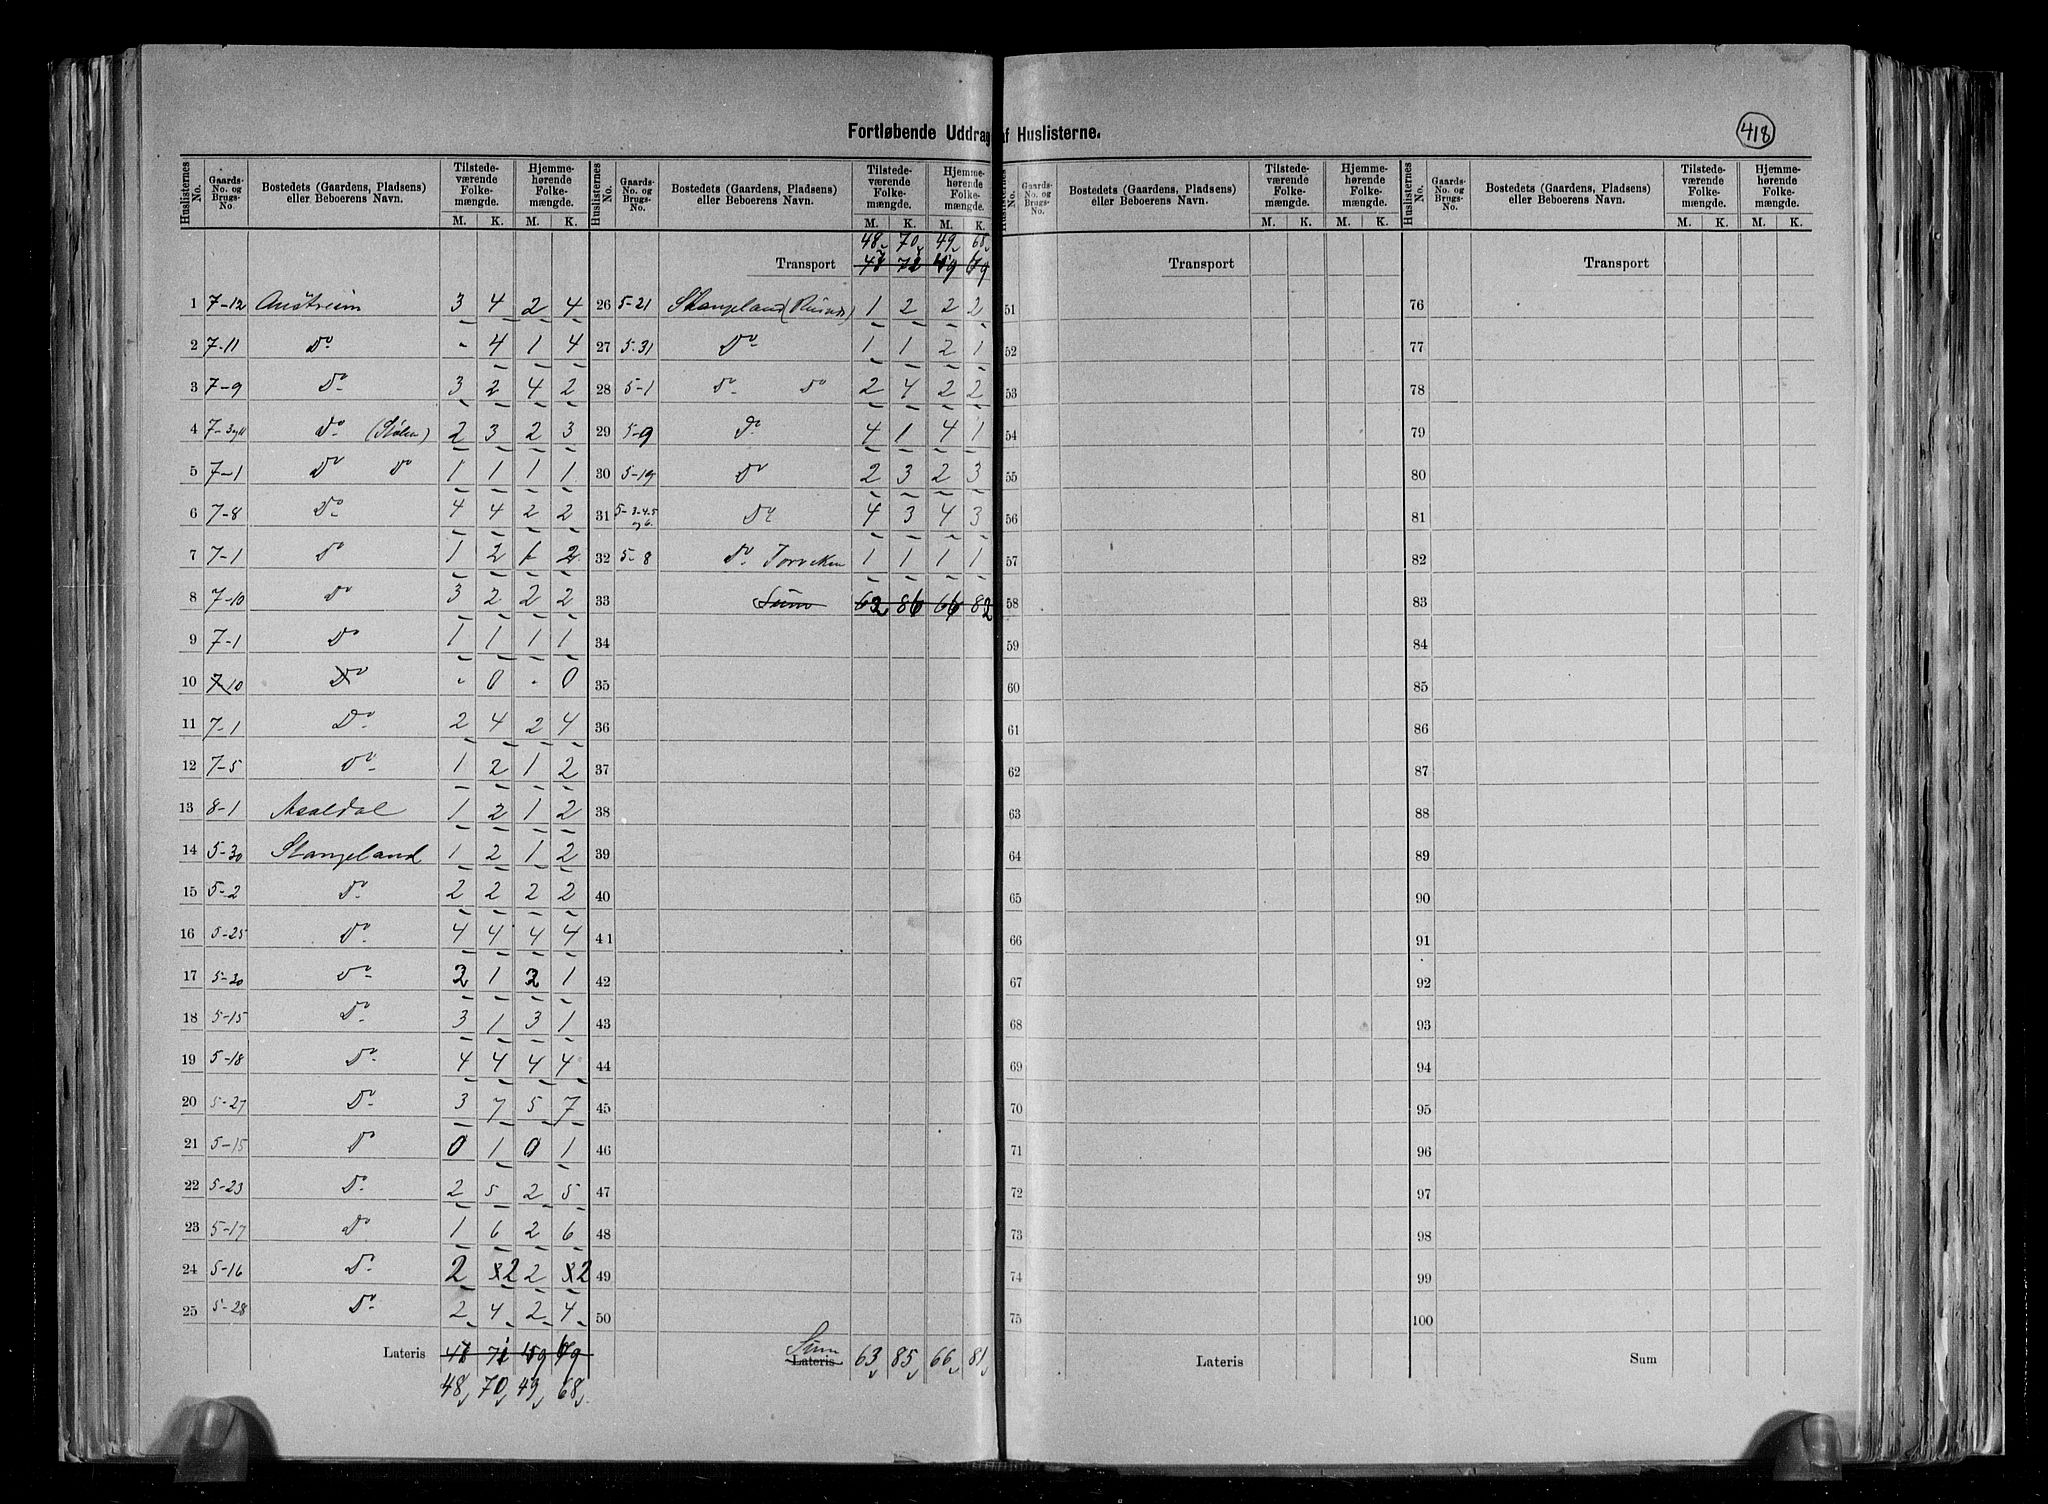 418
Fortløbende Uddrag af Huslisterne.
Huslisternes No. Gaards-No. og Brugs-No. Bostedets (Gaardens, Pladsens) eller Beboerens Navn. Tilstedeværende Folkemængde. M. K. Hjemmehørende Folkemængde. M. K.
1 7-12 Austreim 3 4 2 4
2 7-11 Do - 4 1 4
3 7-9 Do 3 2 4 2
4 Do (Stølen) 2 3 2 3
5 7-1 Do Do 1 1 1 1
6 7-8 Do 4 4 2 2
7 7-1 Do 1 2 1 2
8 7-10 Do 3 2 2 2
9 7-1 Do 1 1 1 1
10 7-10 Do - 0 - 0
11 7-1 Do 2 4 2 4
12 7-5 Do 1 2 1 2
13 8-1 Asaldal 1 2 1 2
14 5-30 Stangeland 1 2 1 2
15 5-2 Do 2 2 2 2
16 5-25 Do 4 4 4 4
17 5-20 Do 2 1 2 1
18 5-15 Do 3 1 3 1
19 5-18 Do 4 4 4 4
20 5-27 Do 3 7 5 7
21 5-15 Do 0 1 0 1
22 5-23 Do 2 5 2 5
23 5-17 Do 1 6 2 6
24 5-16 Do 2 2 2 2
25 5-28 Do 2 4 2 4
Lateris
48 70 49 68
Huslisternes No. Gaards-No. og Brugs-No. Bostedets (Gaardens, Pladsens) eller Beboerens Navn. Tilstedeværende Folkemængde. M. K. Hjemmehørende Folkemængde. M. K.
48 70 49 68
Transport
26 5-21 Stangeland 1 2 2 2
27 5-31 Do 1 1 2 1
28 5-1 Do Do 2 4 2 2
29 5-9 Do 4 1 4 1
30 5-19 Do 2 3 2 3
31 5-3-4-5 og 6. Do 4 3 4 3
32 5-8 Do Torveken 1 1 1 1
33 Sum 62 86 66 82
34
35
36
37
38
39
40
41
42
43
44
45
46
47
48
49
50
Sum
Lateris 63 85 66 81
Huslisternes No. Gaards-No. og Brugs-No. Bostedets (Gaardens, Pladsens) eller Beboerens Navn. Tilstedeværende Folkemængde. M. K. Hjemmehørende Folkemængde. M. K.
Transport
51
52
53
54
55
56
57
58
59
60
61
62
63
64
65
66
67
68
69
70
71
72
73
74
75
Lateris
Huslisternes No. Gaards-No. og Brugs-No. Bostedets (Gaardens, Pladsens) eller Beboerens Navn. Tilstedeværende Folkemængde. M. K. Hjemmehørende Folkemængde. M. K.
Transport
76
77
78
79
80
81
82
83
84
85
86
87
88
89
90
91
92
93
94
95
96
97
98
99
100
Sum